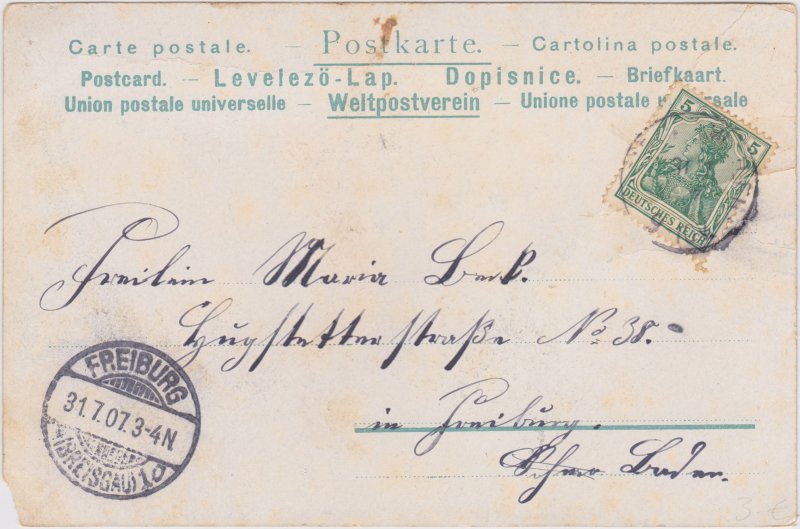 Carte postale. — Postkarte. — Cartolina postale.
Postcard. — Levelezö-Lap. Dopisnice. — Briefkaart.
Union postale universelle — Weltpostverein — Unione postale universale
5 5
DEUTSCHES REICH
Freilein Maria Beck.
Hugstetterstraße No 38.
in Freiburg.
Baden.
FREIBURG
31.7.07.3-4N.
(BREISGAU) 1d
3.-€